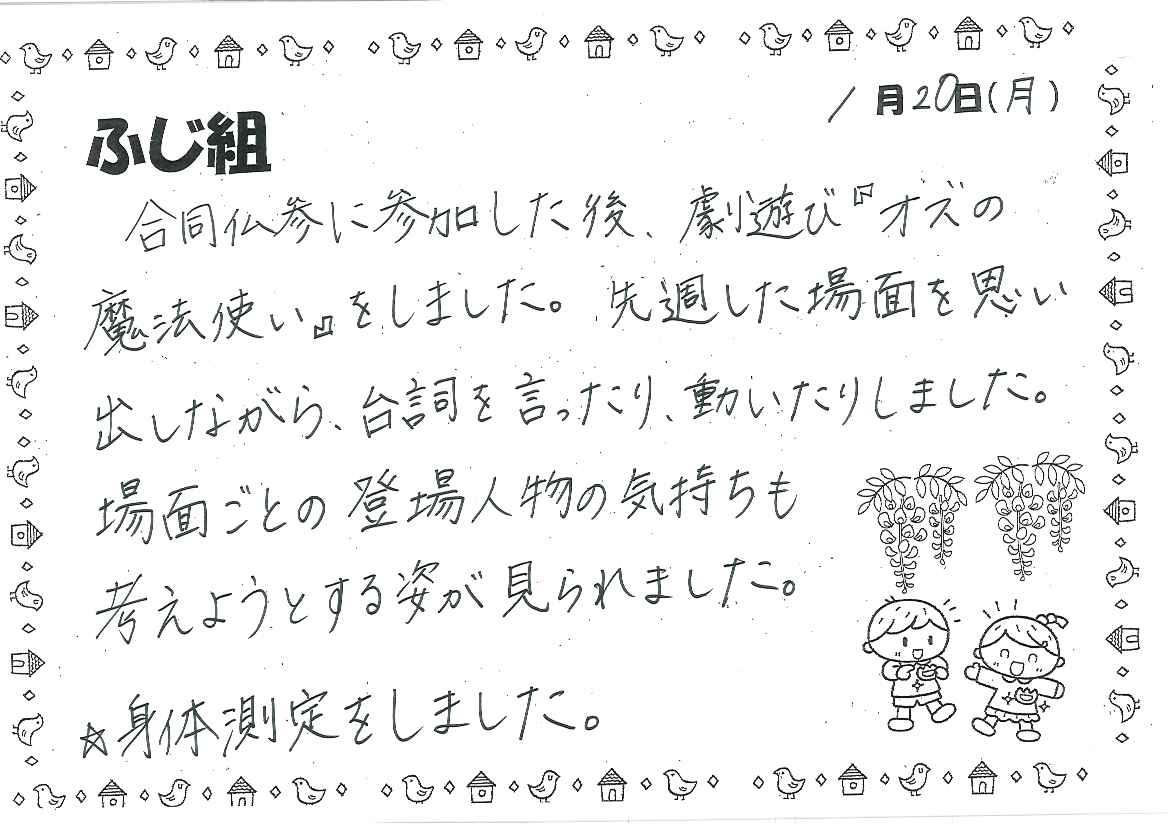 1月20日(月)
ふじ組
合同仏参に参加した後、劇遊び『オズの
魔法使い』をしました。先週した場面を思い
出しながら、台詞を言ったり、動いたりしました。
場面ごとの登場人物の気持ちも
考えようとする姿が見られました。
☆身体測定をしました。